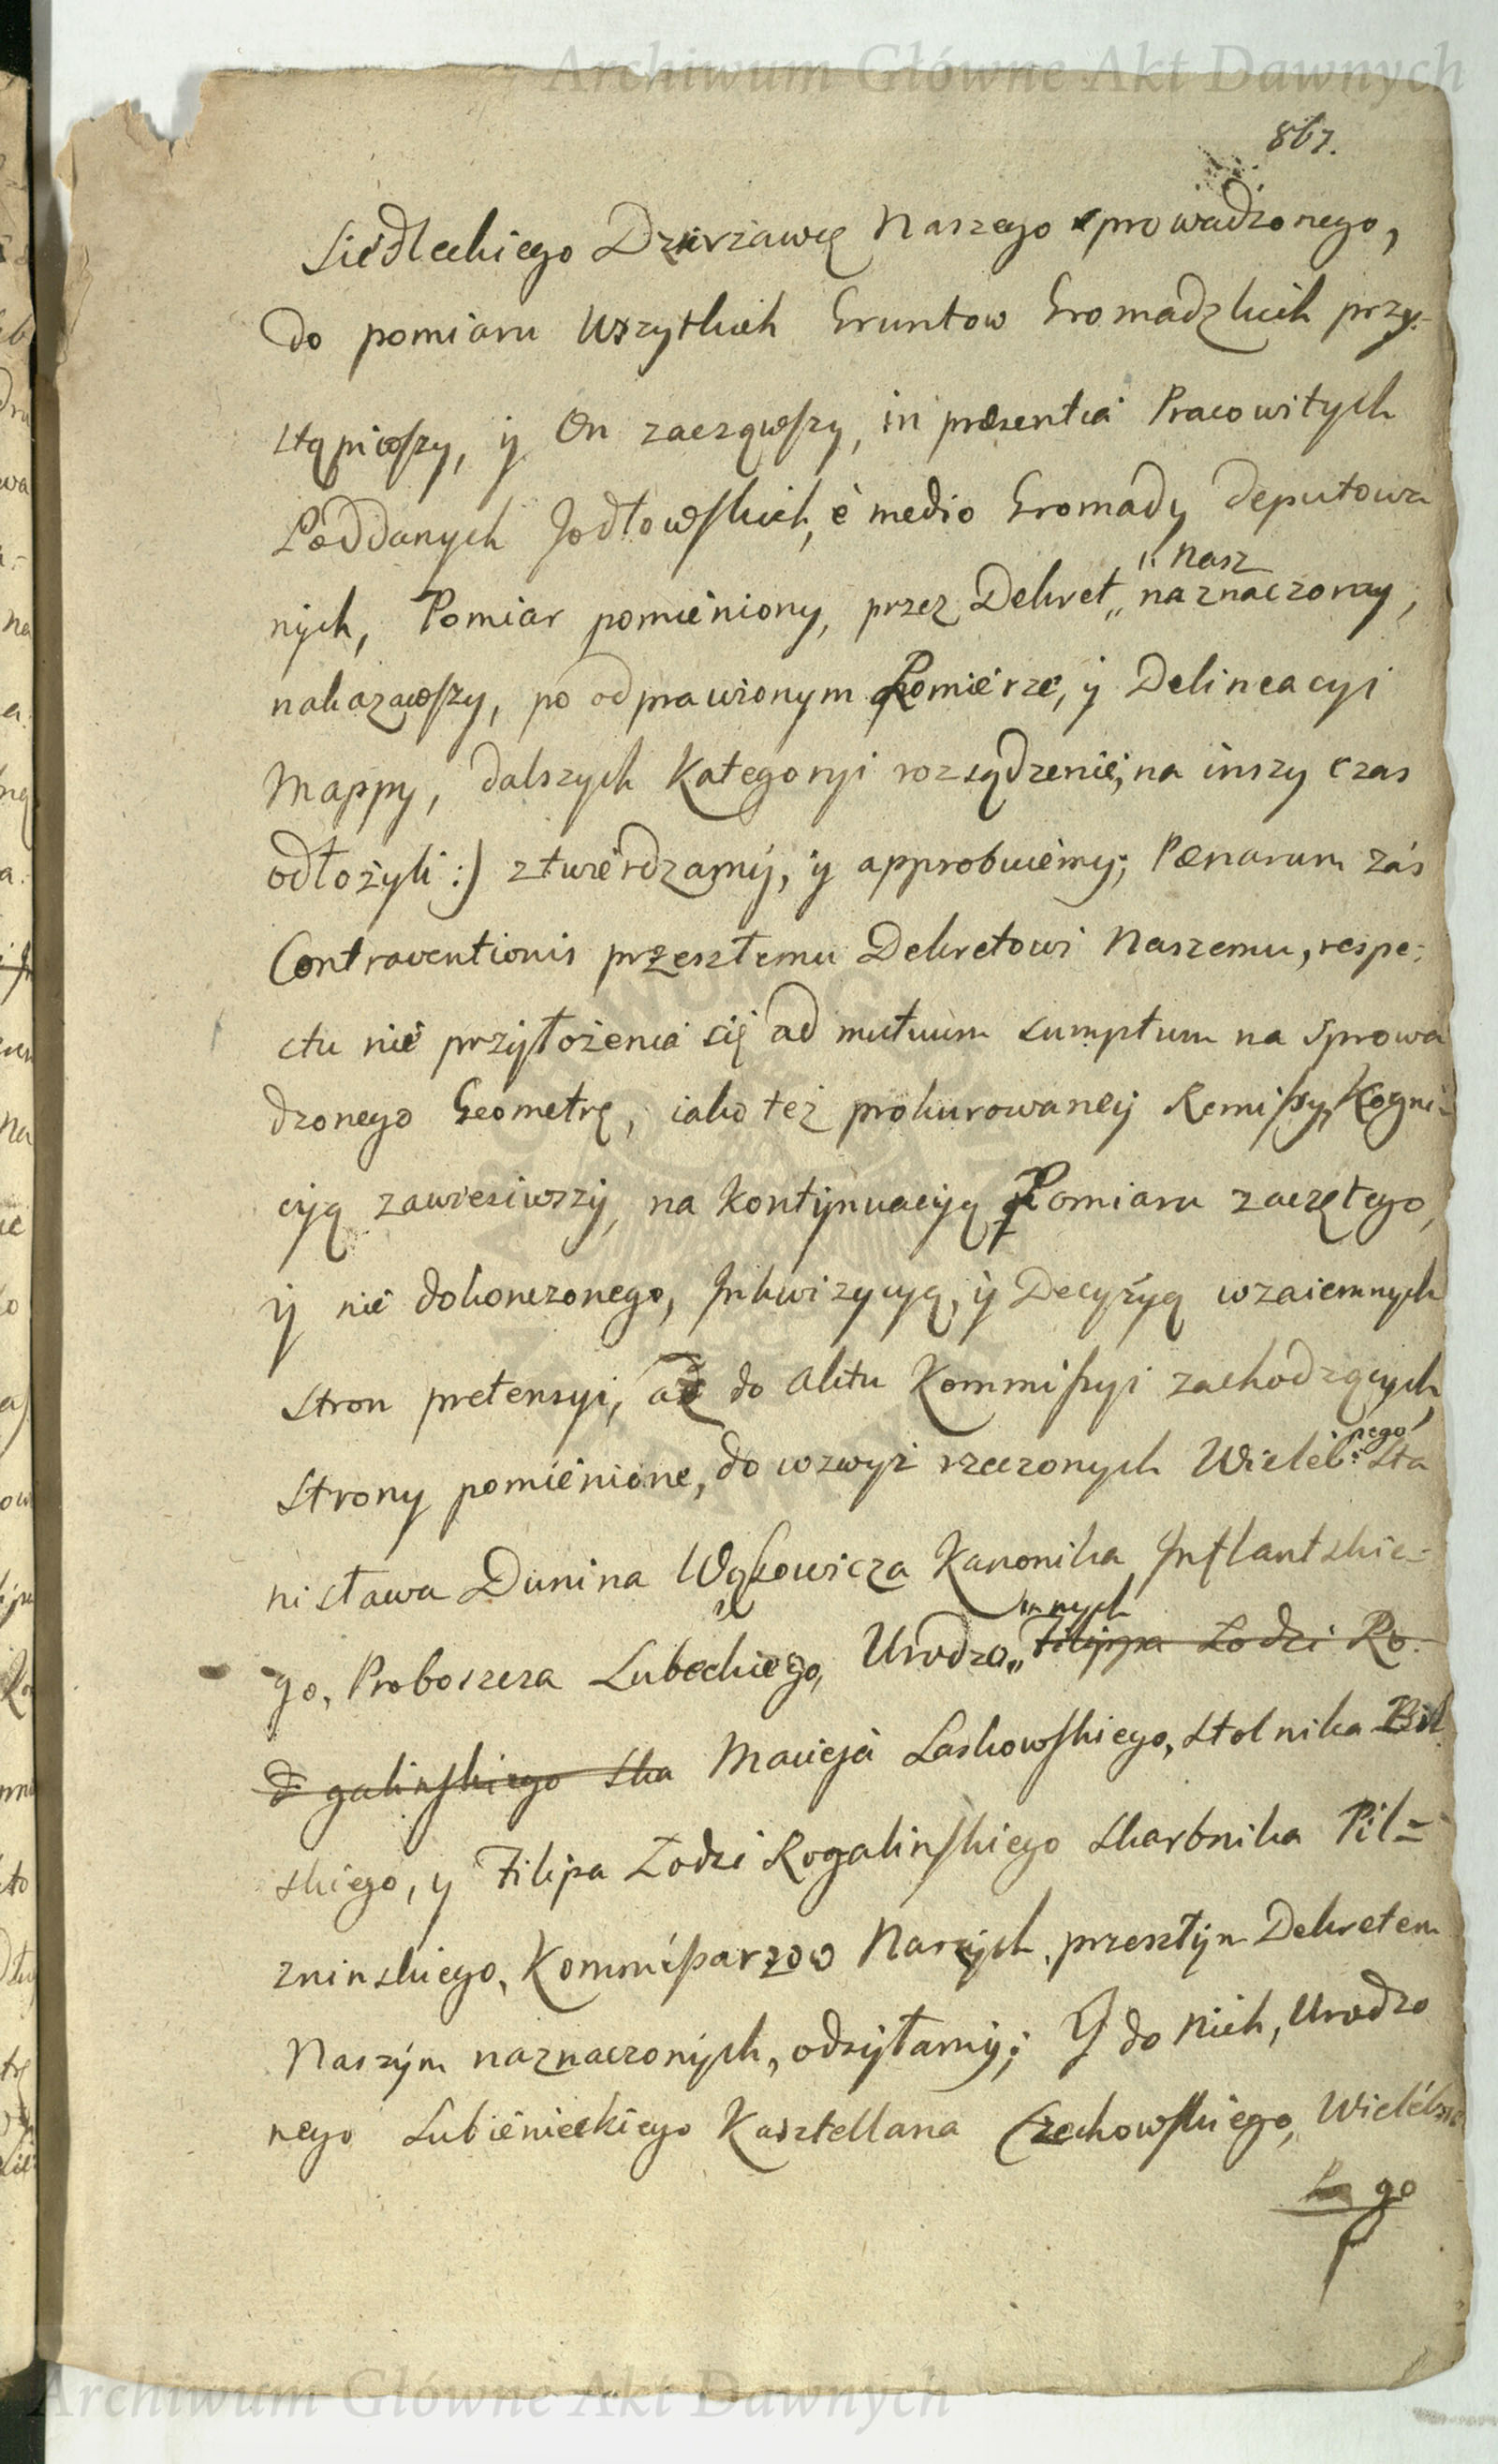 Archiwum Główne Akt Dawnych
867.
Siedleckiego Dzierżawcę Naszego sprowadzonego,
do pomiaru Wszytkich Gruntow Gromadzkich przy-
stąpiwszy, y On zacząwszy, in præsentia Pracowitych
Poddanych Jodłowskich, è medio Gromady deputowa
nych, Pomiar pomieniony, przez Dekret „ nasz
naznaczony,
nakazawszy, po odprawionym Pomierze, y Delineacyi
Mappy, dalszych Kategoryi rozsądzenie, na inszy czas
odłożyli :) ztwierdzamy, y approbuiemy; Pœnarum zaś
Contraventionis przeszłemu Dekretowi Naszemu, respe-
ctu nie przyłożenia się ad mutuum sumptum na sprowa
dzonego Geometrę, iako też prokurowaney Remissy, Kogni-
cyą zawiesiwszy, na kontynuacyą Pomiaru zaczętego,
y nie dokonczonego, Inkwizycyą, y Decyzyą wzaiemnych
stron pretensyi, aż do Aktu Kommissyi zachodzących,
strony pomienione, do wzwyż rzeczonych Wieleb:nego Sta
nisława Dunina Wąsowicza Kanonika Inflantskie-
go, Proboszcza Lubockiego, Urodzo„nnych Filippa Łodzi Ro-
galinskiego Ska Macieja Laskowskiego, Stolnika Bił
skiego, y Filipa Łodzi Rogalinskiego Skarbnika Pil=
zninskiego, Kommissarzow Naszych, przeszłym Dekretem
Naszym naznaczonych, odsyłamy; Y do nich, Urodzo
nego Lubienieckiego Kasztellana Czechowskiego, Wielebne
go
Archiwum Główne Akt Dawnych